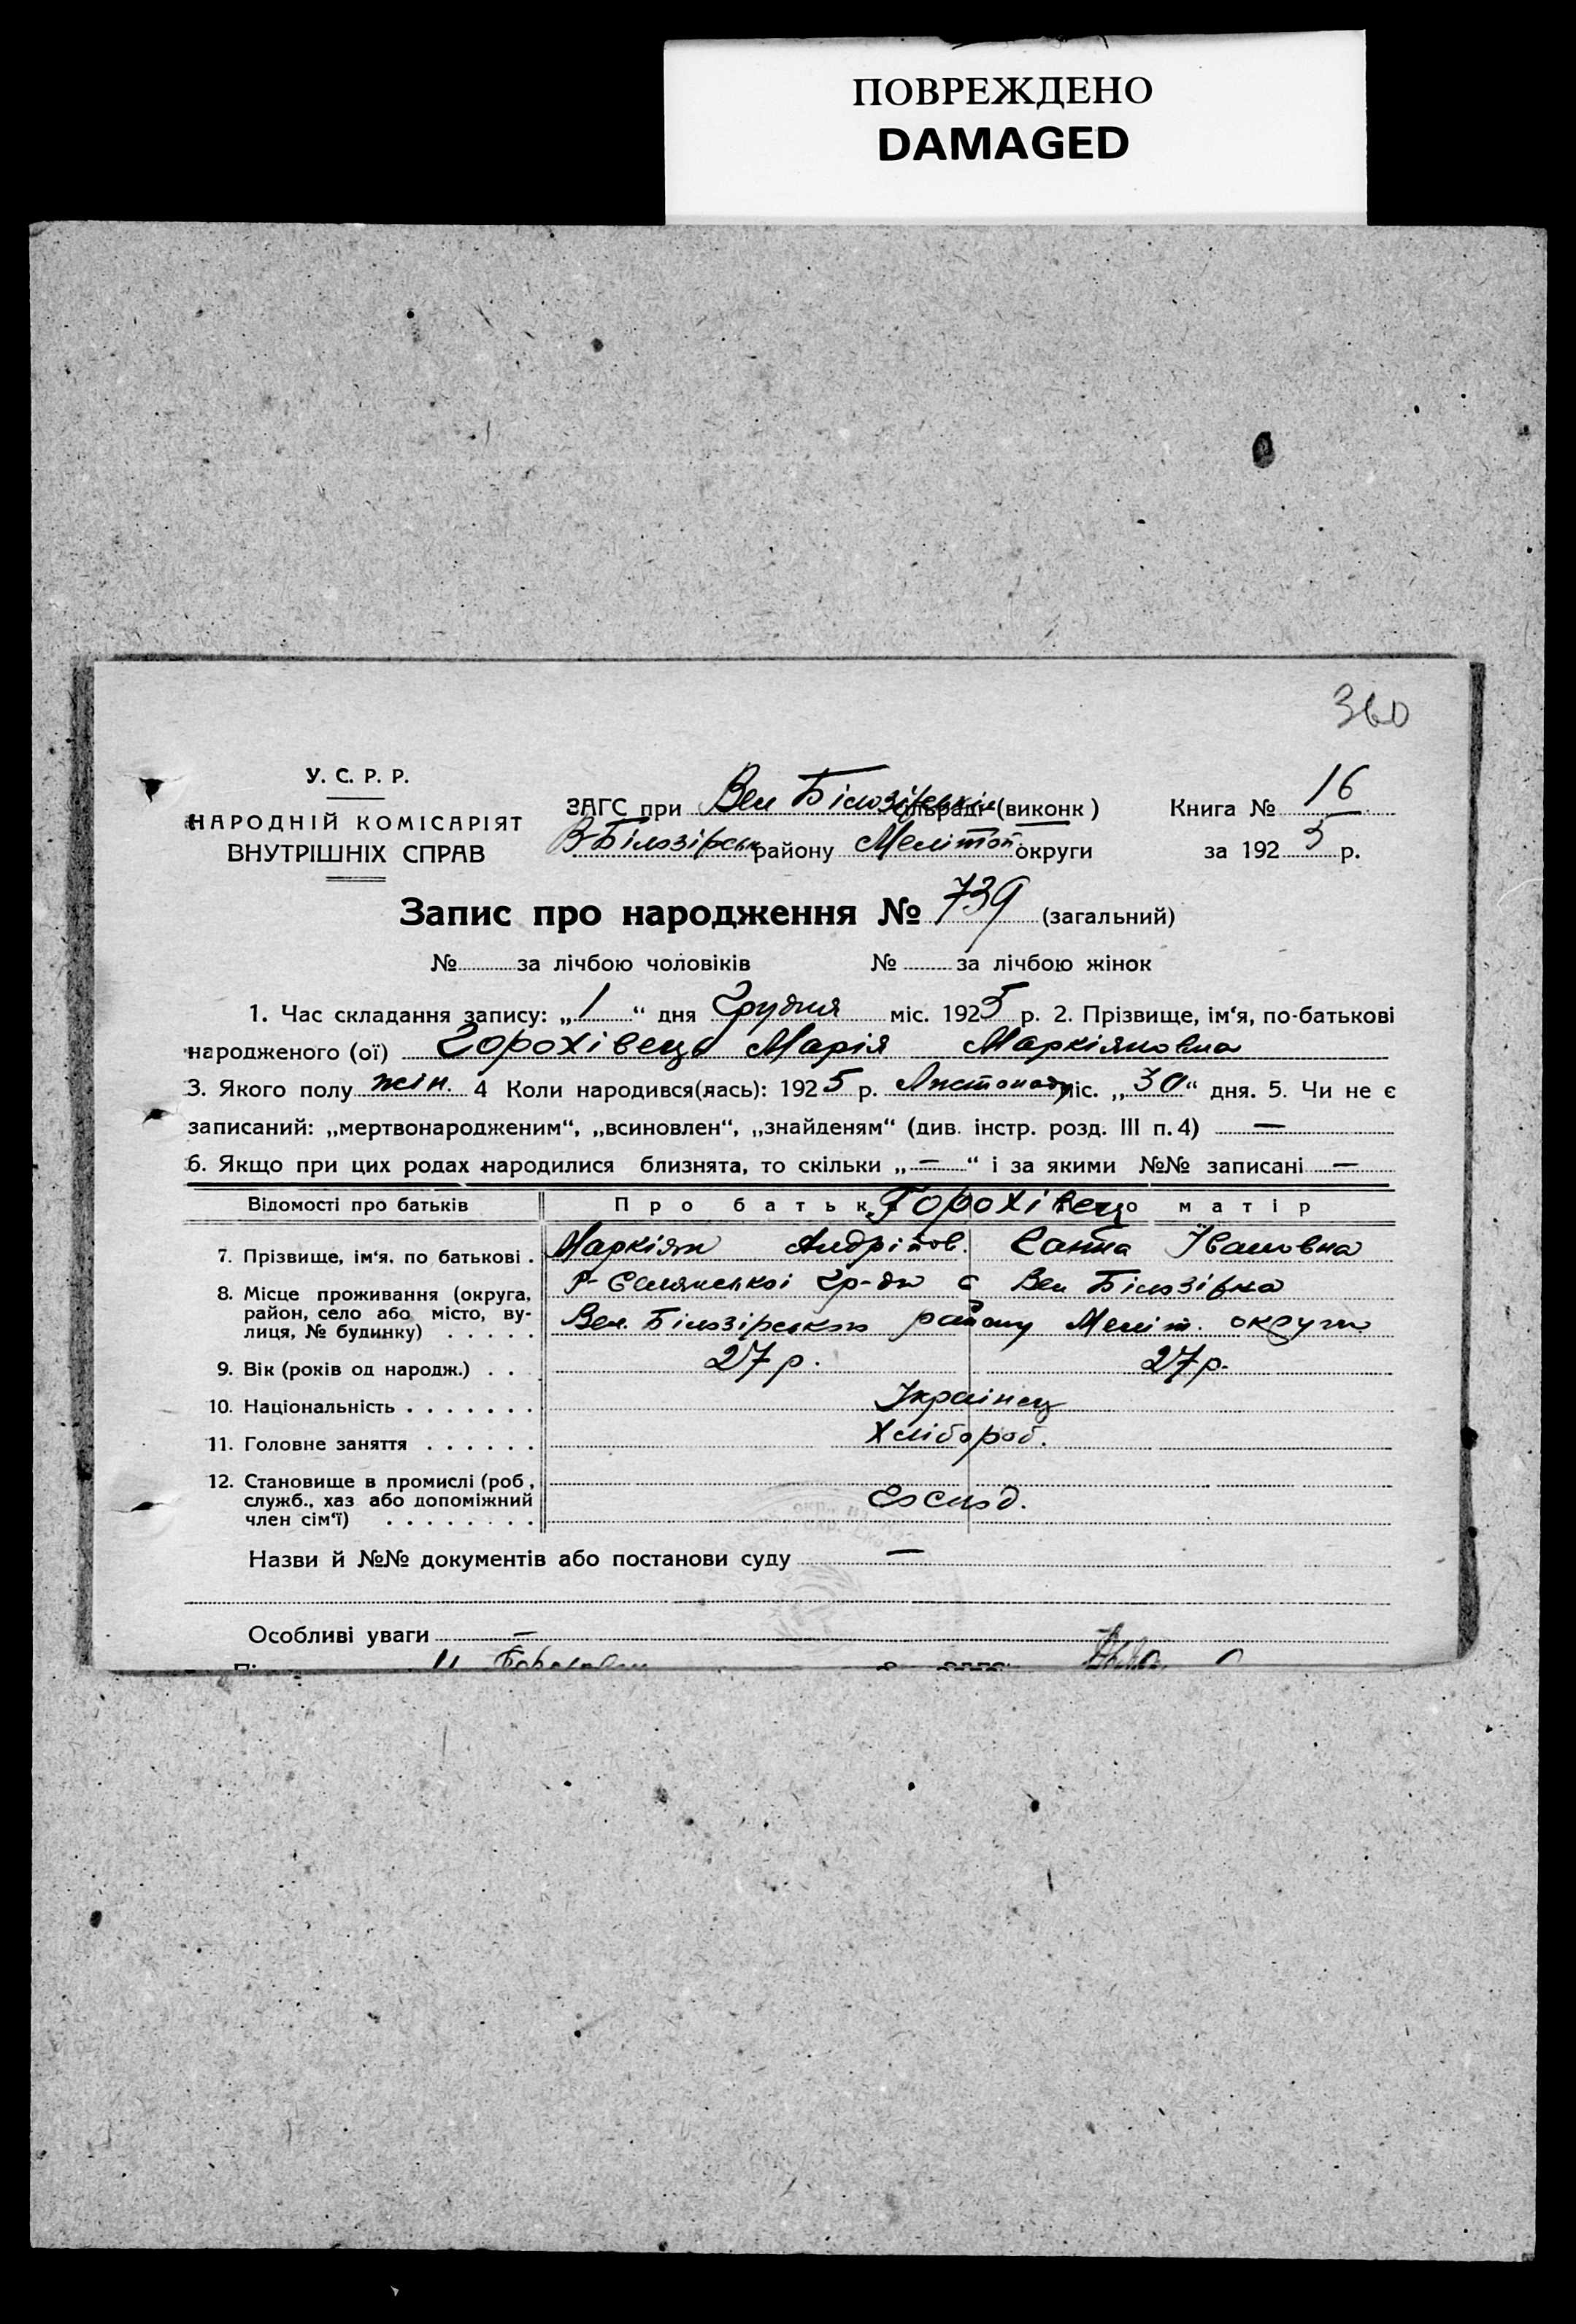 ПОВРЕЖДЕНО
DAMAGED
360
У. С. Р. Р.
НАРОДНІЙ КОМІСАРІЯТ
ВНУТРІШНІХ СПРАВ
ЗАГС при Вел Білозірськім сільраді (виконк)
В-Білозірськ району Мелітоп округи
Книга № 16
за 1925 р.
Запис про народження № 739 (загальний)
№ за лічбою чоловіків № за лічбою жінок
1. Час складання запису: „1“ дня Грудня міс. 1925 р. 2. Прізвище, ім‘я, по-батькові
народженого (ої) Горохівець Марія Маркіяновна
3. Якого полу жін. 4 Коли народився(лась): 1925 р. Листопаду міс. „30“ дня. 5. Чи не є
записаний: „мертвонародженим“, „всиновлен“, „знайденям“ (див. інстр. розд. III п. 4) —
6. Якщо при цих родах народилися близнята, то скільки „—“ і за якими №№ записані —
Відомості про батьків Про батьк Горохівець о матір
7. Прізвище, ім‘я, по батькові . Маркіян Андріїов. Ганна Івановна
8. Місце проживання (округа, район, село або місто, вулиця, № будинку) . . . . .
Селянської гр-дн с Вел Білозірка
Вел. Білозірського району Меліт. округи
9. Вік (років од народж.) . . 27 р. 27 р.
10. Національність . . . . . . . Українец
11. Головне заняття . . . . . . Хлібороб.
12. Становище в промислі (роб,
служб., хаз або допоміжний
член сім‘ї) . . . . . . . .
Господ.
Назви й №№ документів або постанови суду —
Особливі уваги —